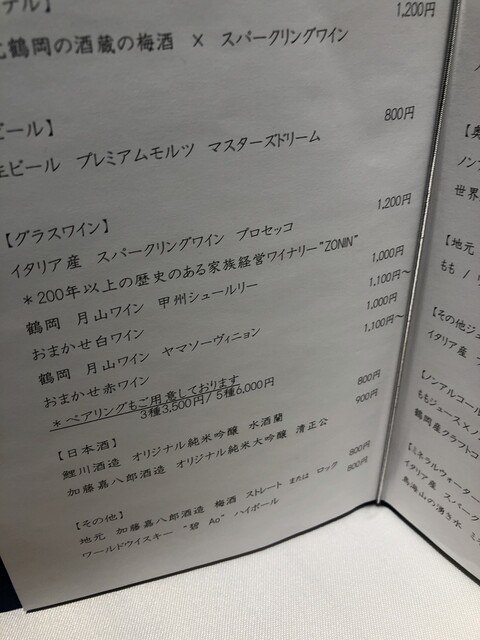 テル】
鶴岡の酒蔵の梅酒 × スパークリングワイン 1,200円
ビール】
生ビール プレミアムモルツ マスターズドリーム 800円
【グラスワイン】
イタリア産 スパークリングワイン プロセッコ 1,200円
*200年以上の歴史のある家族経営ワイナリー"ZONIN"
鶴岡 月山ワイン 甲州シュールリー 1,000円
おまかせ白ワイン 1,100円~
鶴岡 月山ワイン ヤマソーヴィニョン 1,000円
おまかせ赤ワイン 1,100円~
*ペアリングもご用意しております
3種3,500円/5種6,000円
【日本酒】
鯉川酒造 オリジナル純米吟醸 水酒蘭 800円
加藤嘉八郎酒造 オリジナル純米大吟醸 清正公 900円
【その他】
地元 加藤嘉八郎酒造 梅酒 ストレート または ロック 800円
ワールドウイスキー "碧 Ao" ハイボール 800円
【奥
ノン
世界
【地元
もも /
【その他ジュ
イタリア産
【ノンアルコール
ももジュース×ノ
鶴岡産クラフトコ
【ミネラルウォーター
イタリア産 スパーク
鳥海山の湧き水